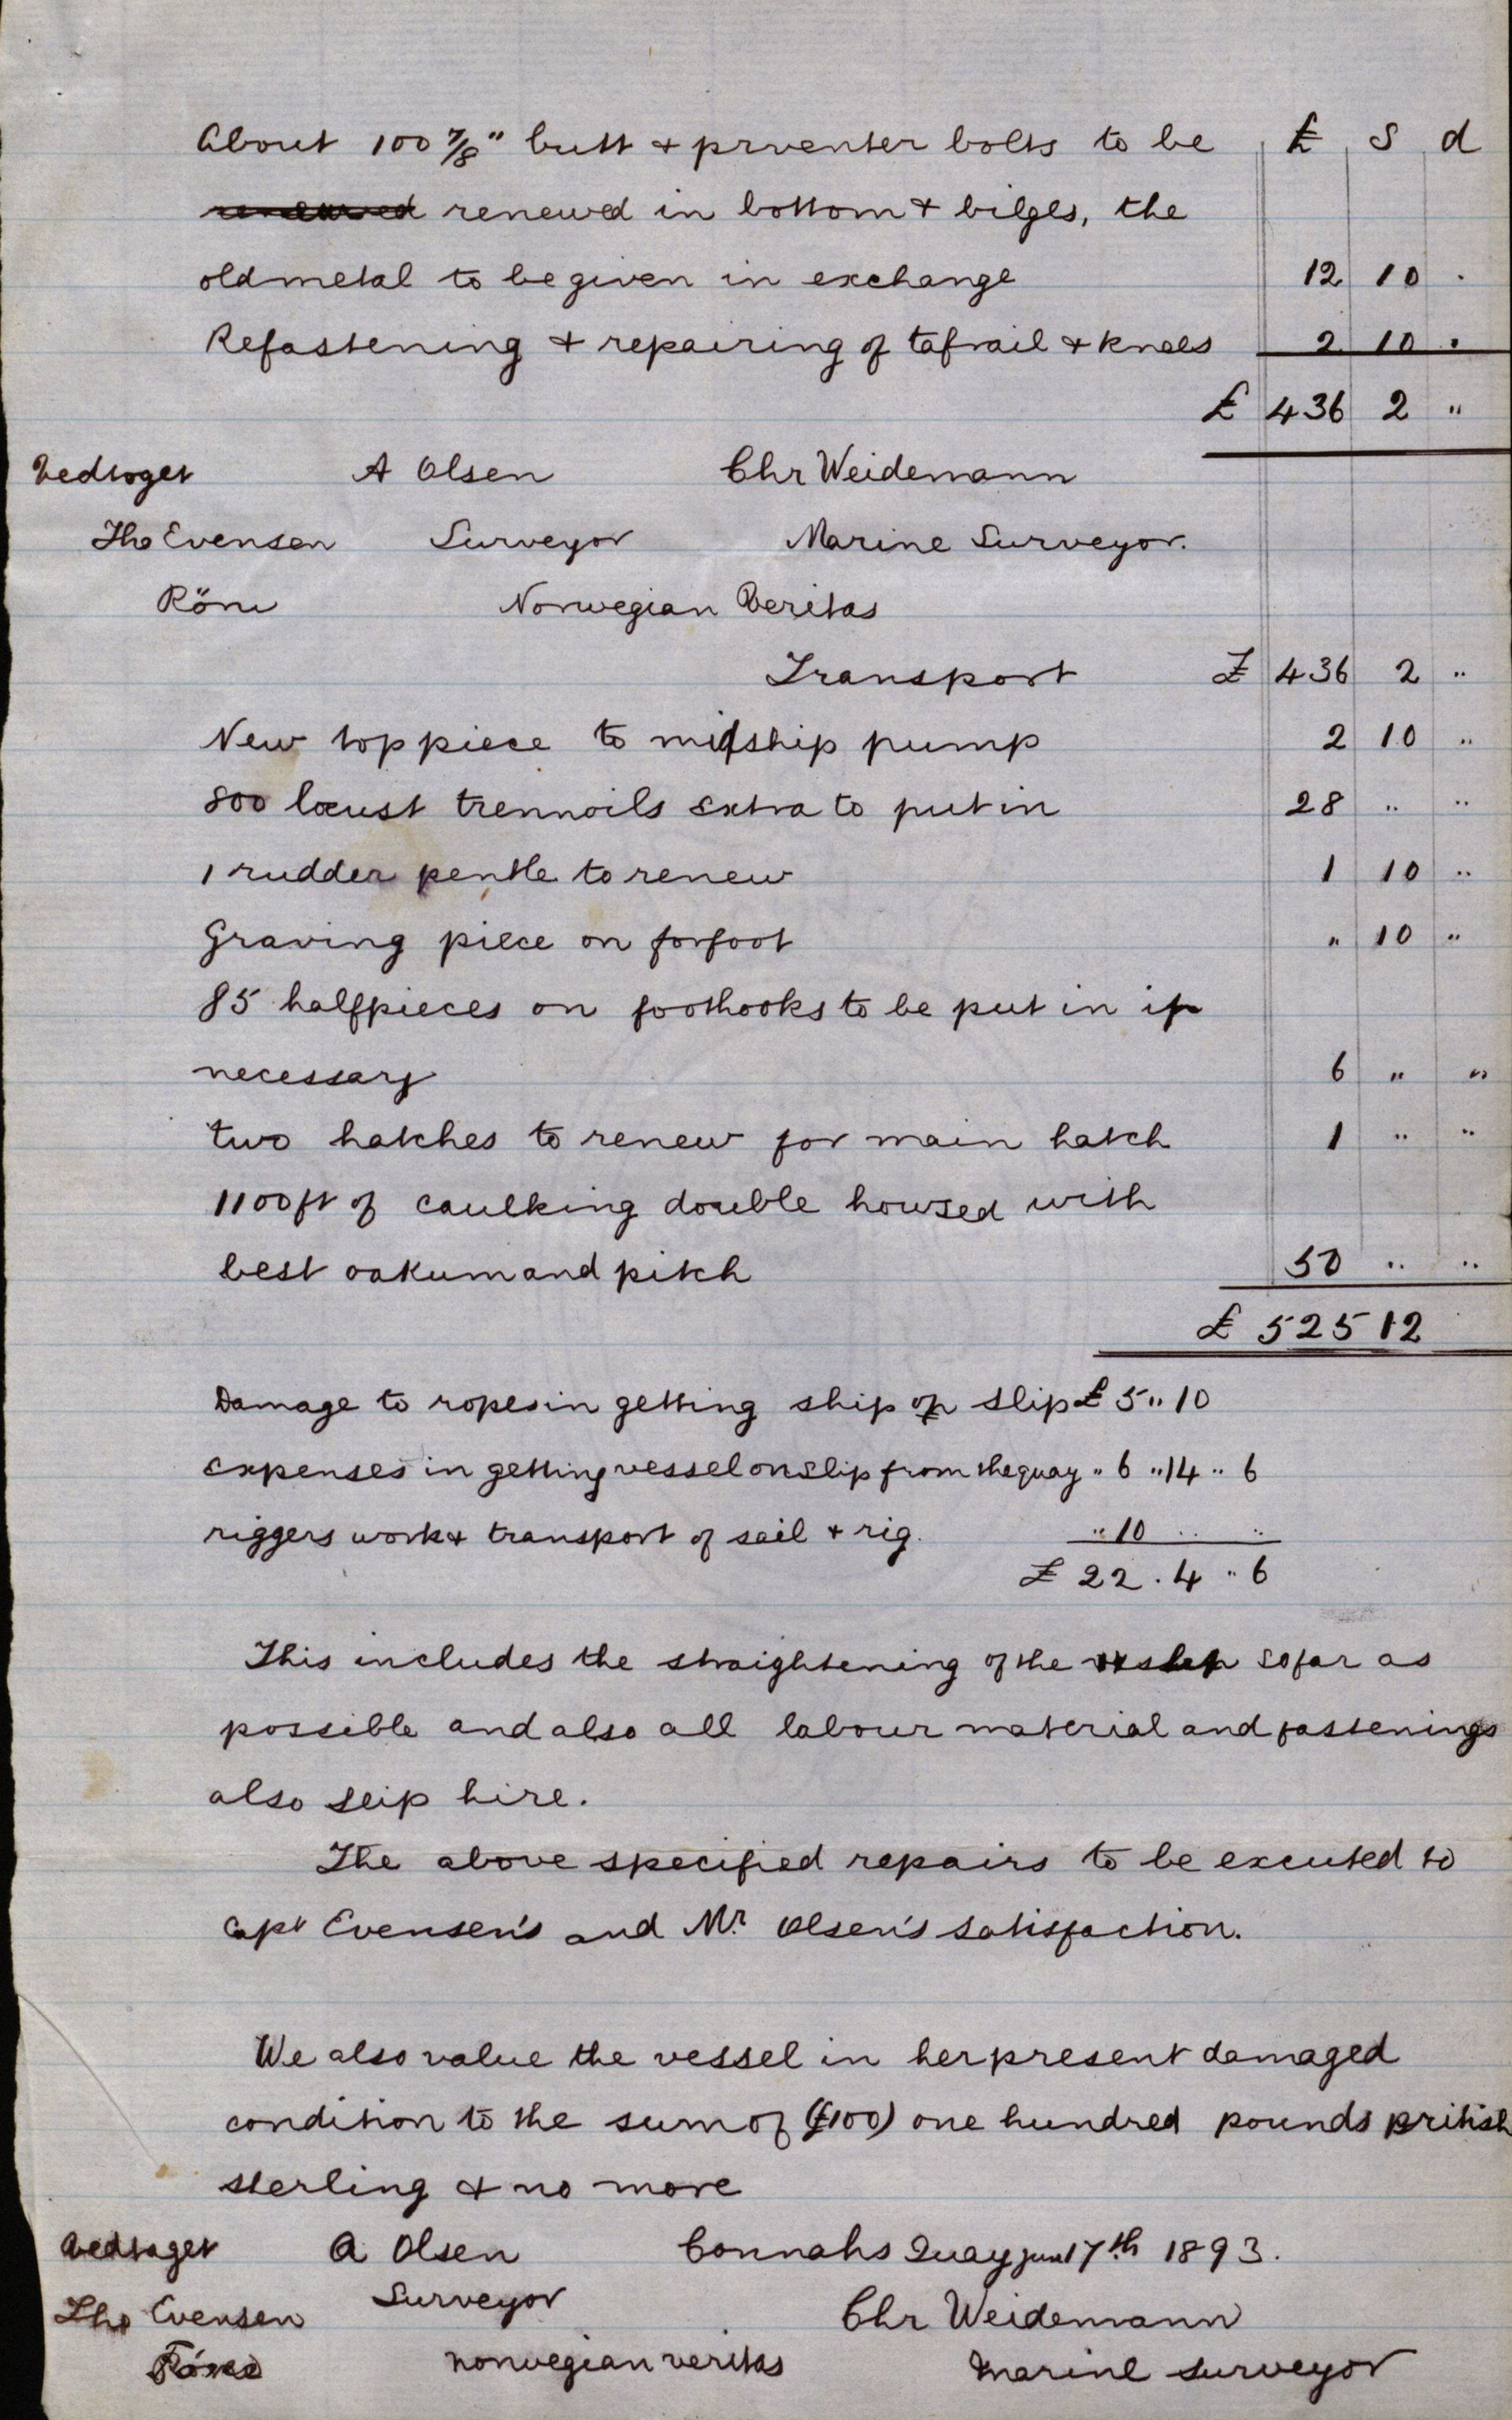 About 100 7/8" butt & prventer bolts to be £ S d
renewed in bottom & bilges, the
old metal to be given in exchange 12 10 .
Refastening & repairing of tafrail & knees 2 10 .
£ 436 2 "
Vedtaget A Olsen Chr Weidemann
Tho Evensen Surveyor Marine Surveyor.
Norwegian Veritas
Transport £ 436 2 "
New top piece to midship pump 2 10 "
800 locust trennails extra to put in 28 " "
1 rudder pentle to renew 1 10 "
Graving piece on forfoot " 10 "
85 halfpieces on foothooks to be put in if
necessary 6 " "
two hatches to renew for main hatch 1 " "
1100 ft of caulking double howsed with
best oakum and pitch 50 " "
£ 525 12
Damage to ropes in getting ship on slip £ 5 " 10
expenses in getting vessel on slip from the quay " 6 " 14 " 6
riggers work & transport of sail & rig. " 10 " "
£ 22 . 4 " 6
This includes the straightening of the so far as
possible and also all labour material and fastenings
also slip hire.
The above specified repairs to be excuted to
Capt Evensen's and Mr Olsen's satisfaction.
We also value the vessel in her present damaged
condition to the sum of (£100) one hundred pounds british
sterling & no more
Vedtaget A Olsen Connahs Quay june 17th 1893.
Tho Evensen Surveyor Chr Weidemann
norwegian veritas marine surveyor